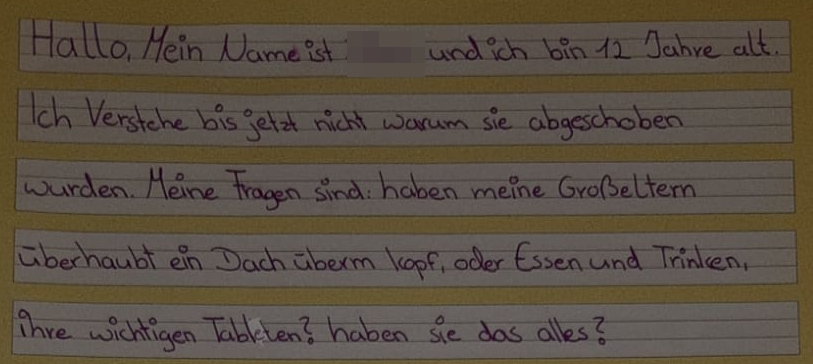 Hallo, Mein Name ist und ich bin 12 Jahre alt.
Ich Verstehe bis jetzt nicht warum sie abgeschoben
wurden. Meine Fragen sind: haben meine Großeltern
überhaubt ein Dach überm kopf, oder Essen und Trinken,
ihre wichtigen Tableten? haben sie das alles?